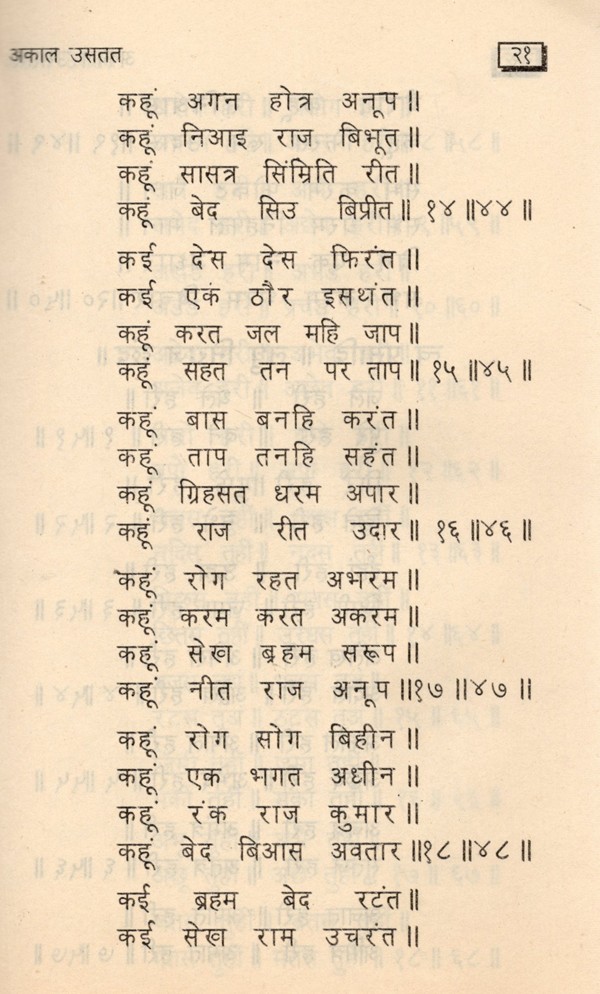 अकाल उसतत २१
कहूं अगन होत्र अनूप॥
कहूं निआइ राज बिभूत॥
कहूं सासत्र सिंम्रिति रीत॥
कहूं बेद सिउ बिप्रीत॥ १४॥४४॥
कई देस देस फिरंत॥
कई एक ठौर इसथंत॥
कहूं करत जल महि जाप॥
कहूं सहत तन पर ताप॥ १५॥४५॥
कहूं बास बनहि करंत॥
कहूं ताप तनहि सहंत॥
कहूं ग्रिहसत धरम अपार॥
कहूं राज रीत उदार॥ १६॥४६॥
कहूं रोग रहत अभरम॥
कहूं करम करत अकरम॥
कहूं सेख ब्रहम सरूप॥
कहूं नीत राज अनूप॥१७॥४७॥
कहूं रोग सोग बिहीन॥
कहूं एक भगत अधीन॥
कहूं रंक राज कुमार॥
कहूं बेद बिआस अवतार॥१८॥४८॥
कई ब्रहम बेद रटंत॥
कई सेख राम उचरंत॥